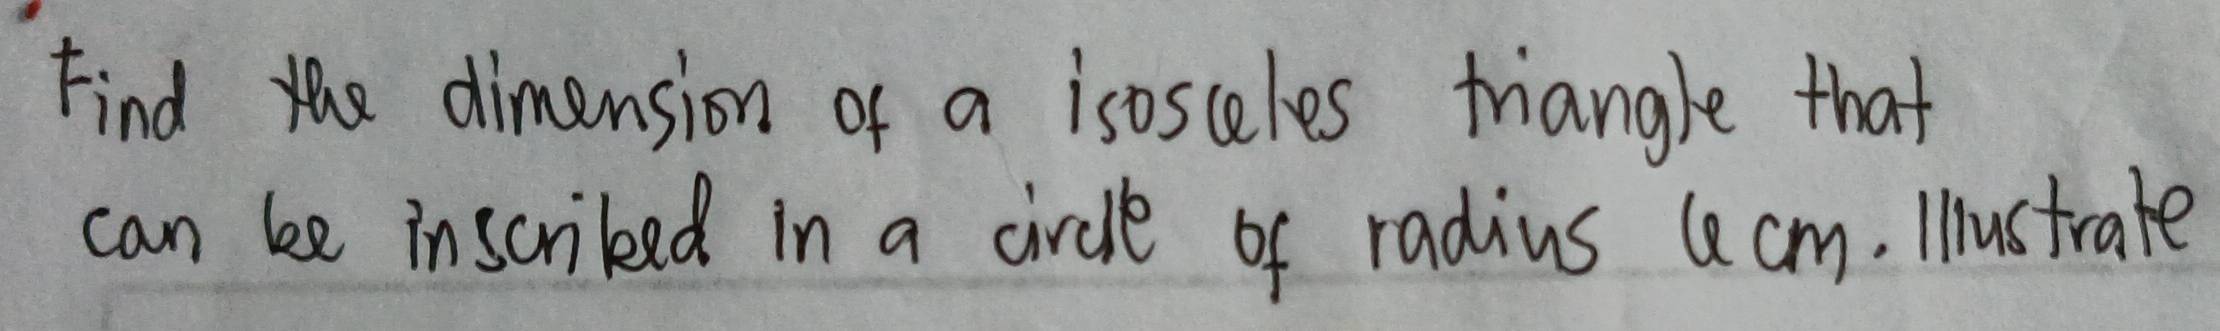 Find the dimension of a isosceles triangle that
can be inscribed in a circle of radius 6 cm. Illustrate